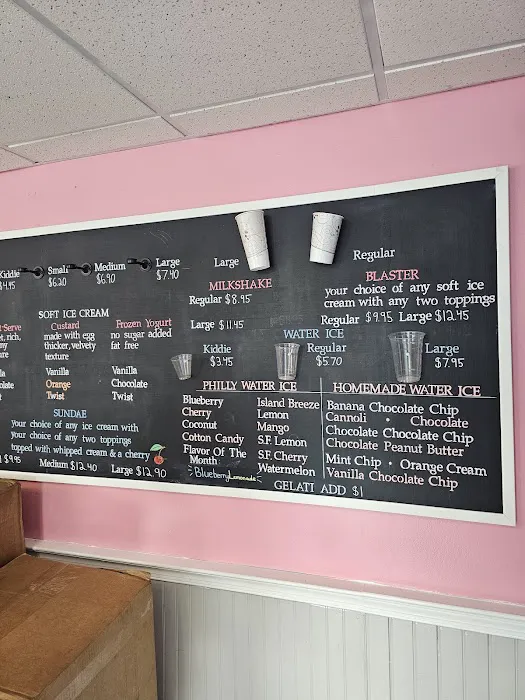 Kiddie
$4.95
Small
$6.20
Medium
$6.90
Large
$7.40
SOFT ICE CREAM
Custard
made with egg
thicker, velvety
texture
Vanilla
Orange
Twist
Frozen Yogurt
no sugar added
fat free
Vanilla
Chocolate
Twist
SUNDAE
your choice of any ice cream with
your choice of any two toppings
topped with whipped cream & a cherry
$9.95 Medium $12.40 Large $12.90
Large
Regular
MILKSHAKE
Regular $8.95
Large $11.45
BLASTER
your choice of any soft ice
cream with any two toppings
Regular $9.95 Large $12.45
WATER ICE
Kiddie
$3.45
Regular
$5.70
Large
$7.95
PHILLY WATER ICE
Blueberry
Cherry
Coconut
Cotton Candy
Flavor Of The
Month:
Blueberry Lemonade
Island Breeze
Lemon
Mango
S.F. Lemon
S.F. Cherry
Watermelon
HOMEMADE WATER ICE
Banana Chocolate Chip
Cannoli • Chocolate
Chocolate Chocolate Chip
Chocolate Peanut Butter
Mint Chip • Orange Cream
Vanilla Chocolate Chip
GELATI ADD $1